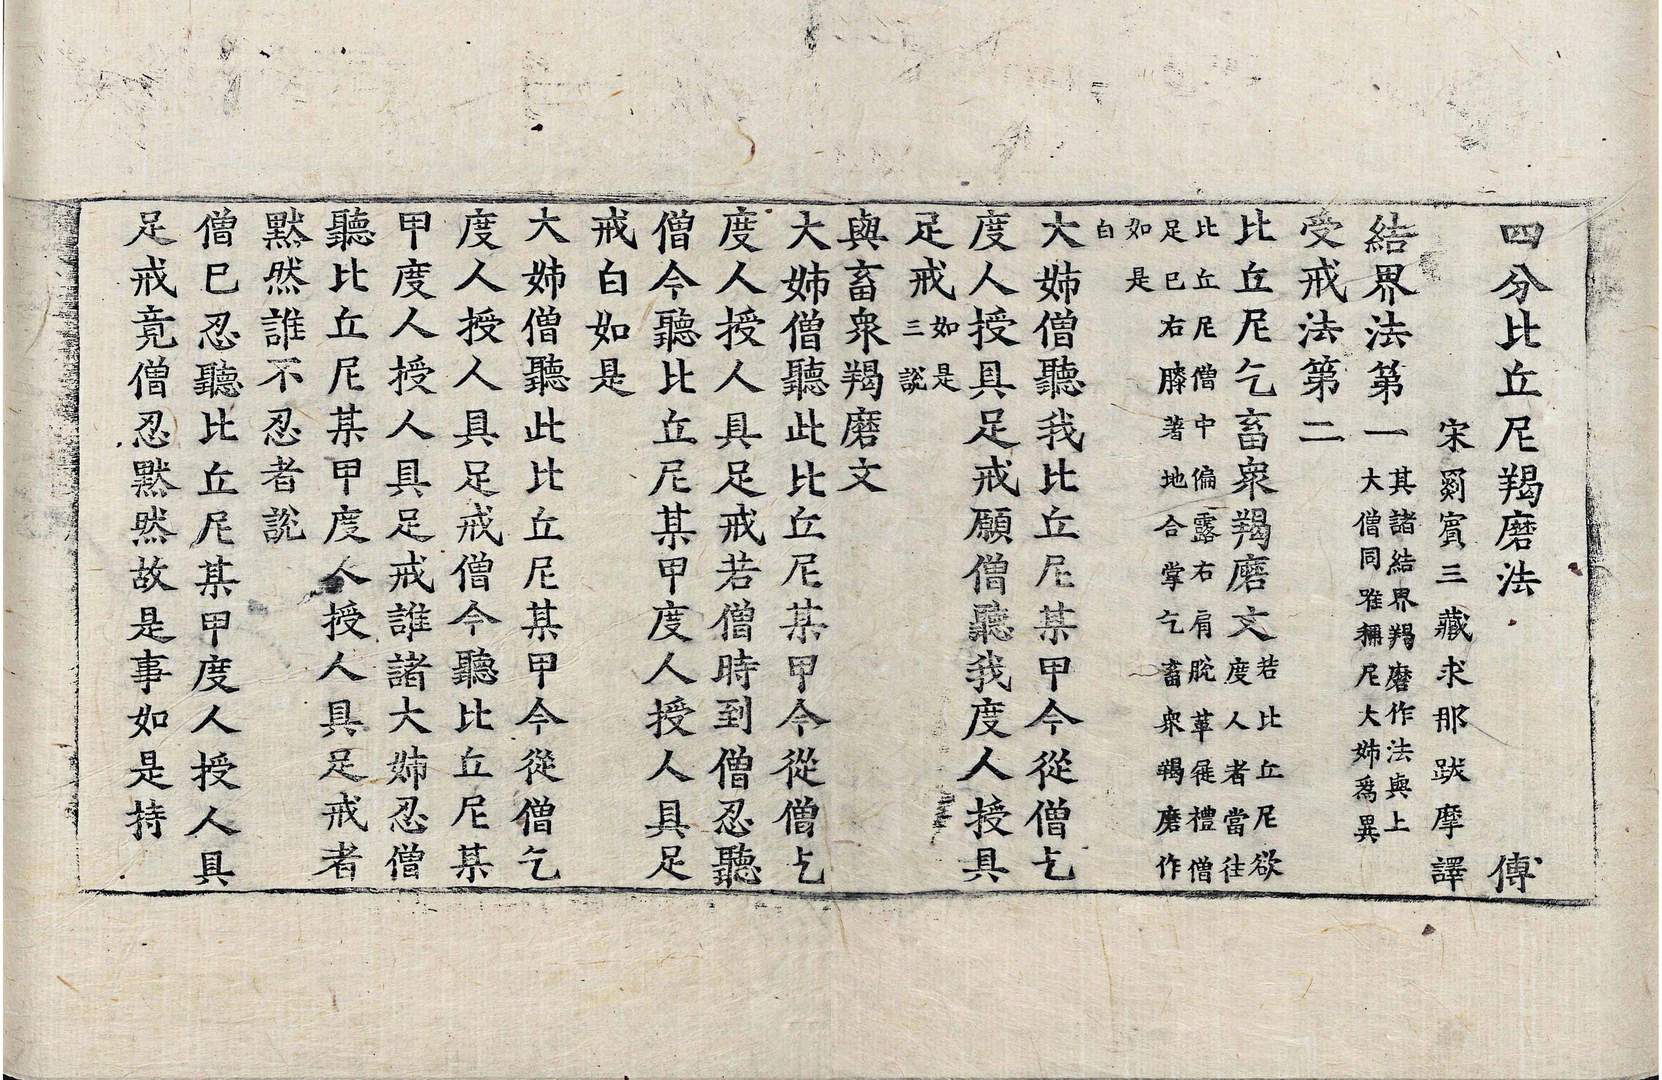 四分比丘尼羯磨法 傅
宋罽賓三藏求那跋摩譯
結界法第一 其諸結界羯磨作法與上
大僧同唯稱尼大姉爲異
受戒法第二
比丘尼乞畜衆羯磨文 若比丘尼欲
度人者當往
比丘尼僧中偏露右肩脫革屣禮僧
足已右膝著地合掌乞畜衆羯磨作
如是
白
大姉僧聽我比丘尼某甲今從僧乞
度人授具足戒願僧聽我度人授具
足戒 如是
三說
與畜衆羯磨文
大姉僧聽此比丘尼某甲今從僧乞
度人授人具足戒若僧時到僧忍聽
僧今聽比丘尼某甲度人授人具足
戒白如是
大姉僧聽此比丘尼某甲今從僧乞
度人授人具足戒僧今聽比丘尼某
甲度人授人具足戒誰諸大姉忍僧
聽比丘尼某甲度人授人具足戒者
默然誰不忍者說
僧已忍聽比丘尼某甲度人授人具
足戒竟僧忍默然故是事如是持